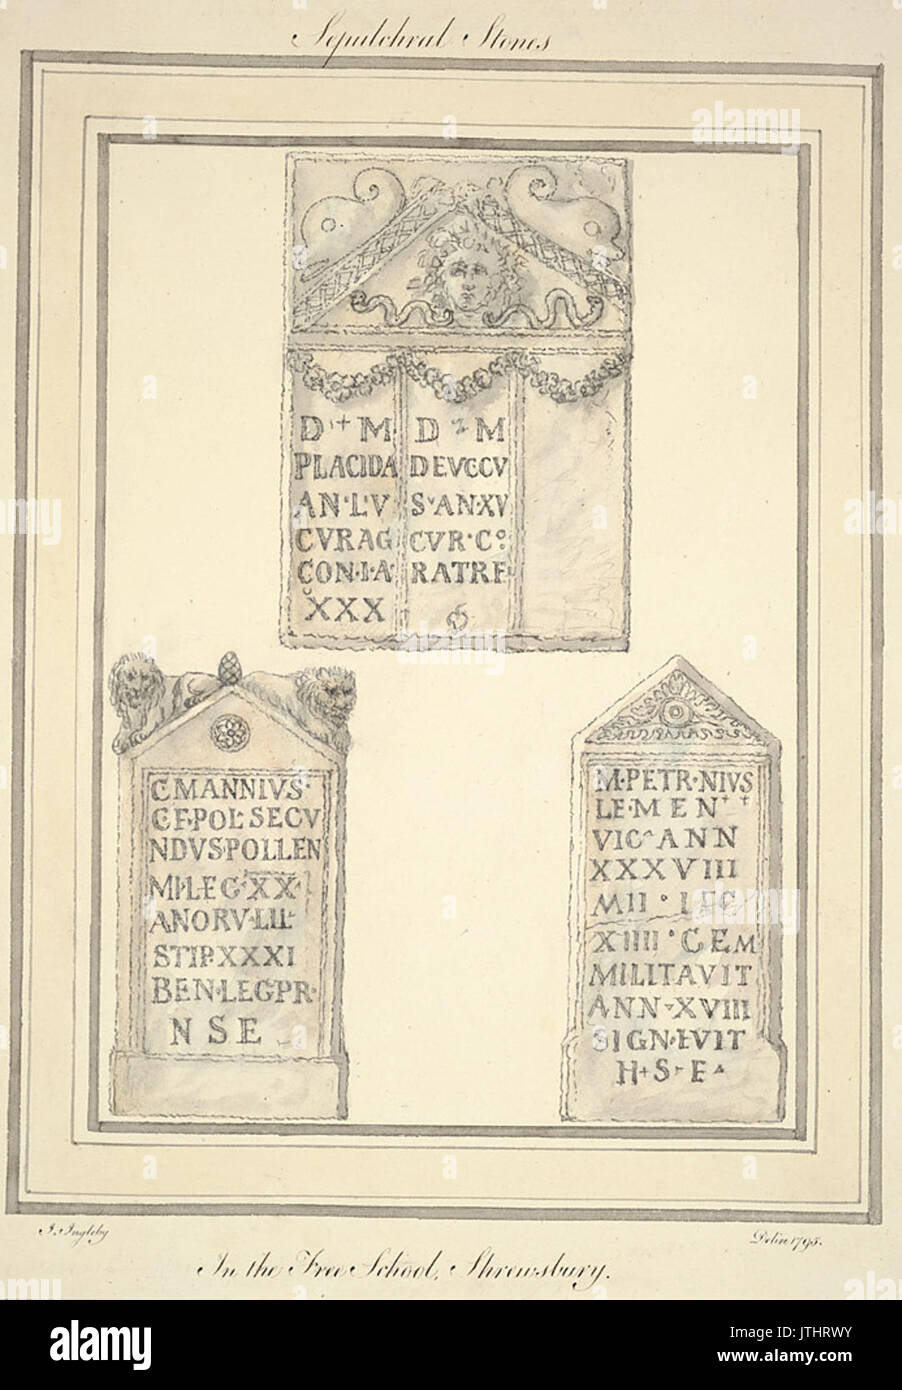 Sepulchral Stones
D + M
PLACIDA
AN·L·V
CVRAG
CON·I·A
XXX
D M
DEVCCV
S·AN·XV
CVR·Co
RATRE
C MANNIVS·
C·F·POL·SECV
NDVS·POLLEN
MI·LEG·XX·
ANORV·LII·
STIP·XXXI
BEN·LEG·PR·
N S E
M·PETR·NIVS
LE·M E N + +
VIC^ANN
XXXVIII
MII ° LEG
XIIII ° GEM
MILITAVIT
ANN·XVIII
SIGN·FVIT
H + S - E
I. Ingleby
Delin 1795.
In the Free School, Shrewsbury.
alamy
Image ID: JTHRWY
www.alamy.com